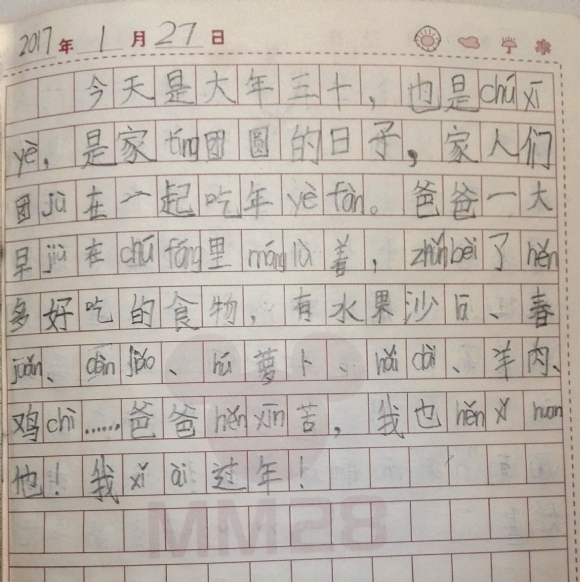 2017年 1 月 27 日
今天是大年三十，也是chú xī
yè，是家tíng团圆的日子，家人们
团jù在一起吃年yè fàn。爸爸一大
早jiù在chú fáng里máng lù着，zhǔnbèi了hěn
多好吃的食物，有水果沙lā、春
juǎn、dàn jiǎo、hú萝卜、hǎi dài、羊肉、
鸡chì……爸爸hěn xīn苦，我也hěn xǐ huan
他！我xǐ ài过年！
BSMM